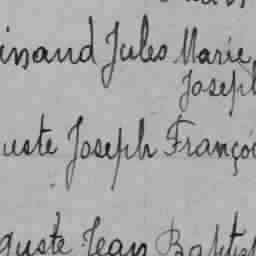 inand Jules Marie
Joseph
uste Joseph Françoi
guste Jean Baptist